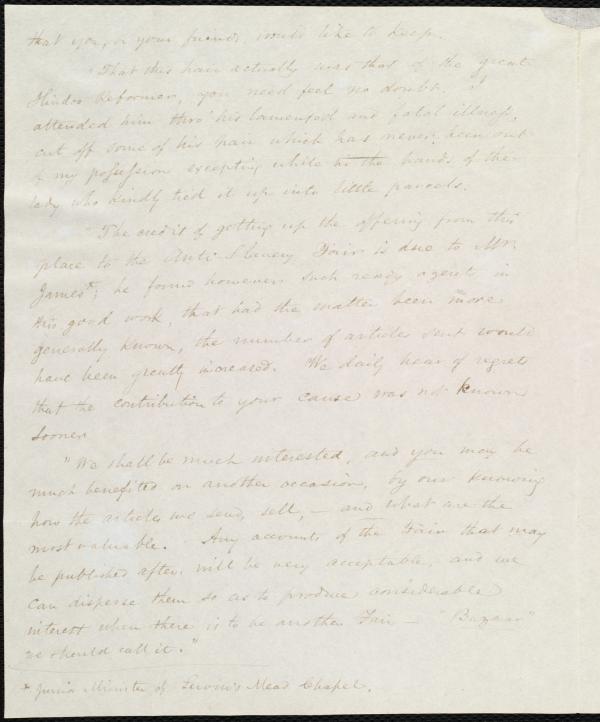 that you, or your friends would like to keep.
"That this hair actually was that of the great
Hindoo Reformer, you need feel no doubt. I
attended him thro' his lamented and fatal illness,
cut off some of his hair which has never been out
of my possession excepting while in the hands of the
lady who kindly tied it up into little parcels.
"The credit of getting up the offering from this
place to the Anti Slavery Fair is due to Mr.
James*; he found however such ready agents in
this good work, that had the matter been more
generally known, the number of articles sent would
have been greatly increased. We daily hear of regrets
that the contribution to your cause was not known
sooner
"We shall be much interested, and you may be
much benefited on another occasion, by our knowing
how the articles we send, sell, — and what are the
most valuable. Any accounts of the Fair that may
be published after will be very acceptable, and we
can disperse them so as to produce considerable
interest when there is to be another Fair — "Bazaar"
we should call it."
* Junior Minister of Lewin's Mead Chapel.